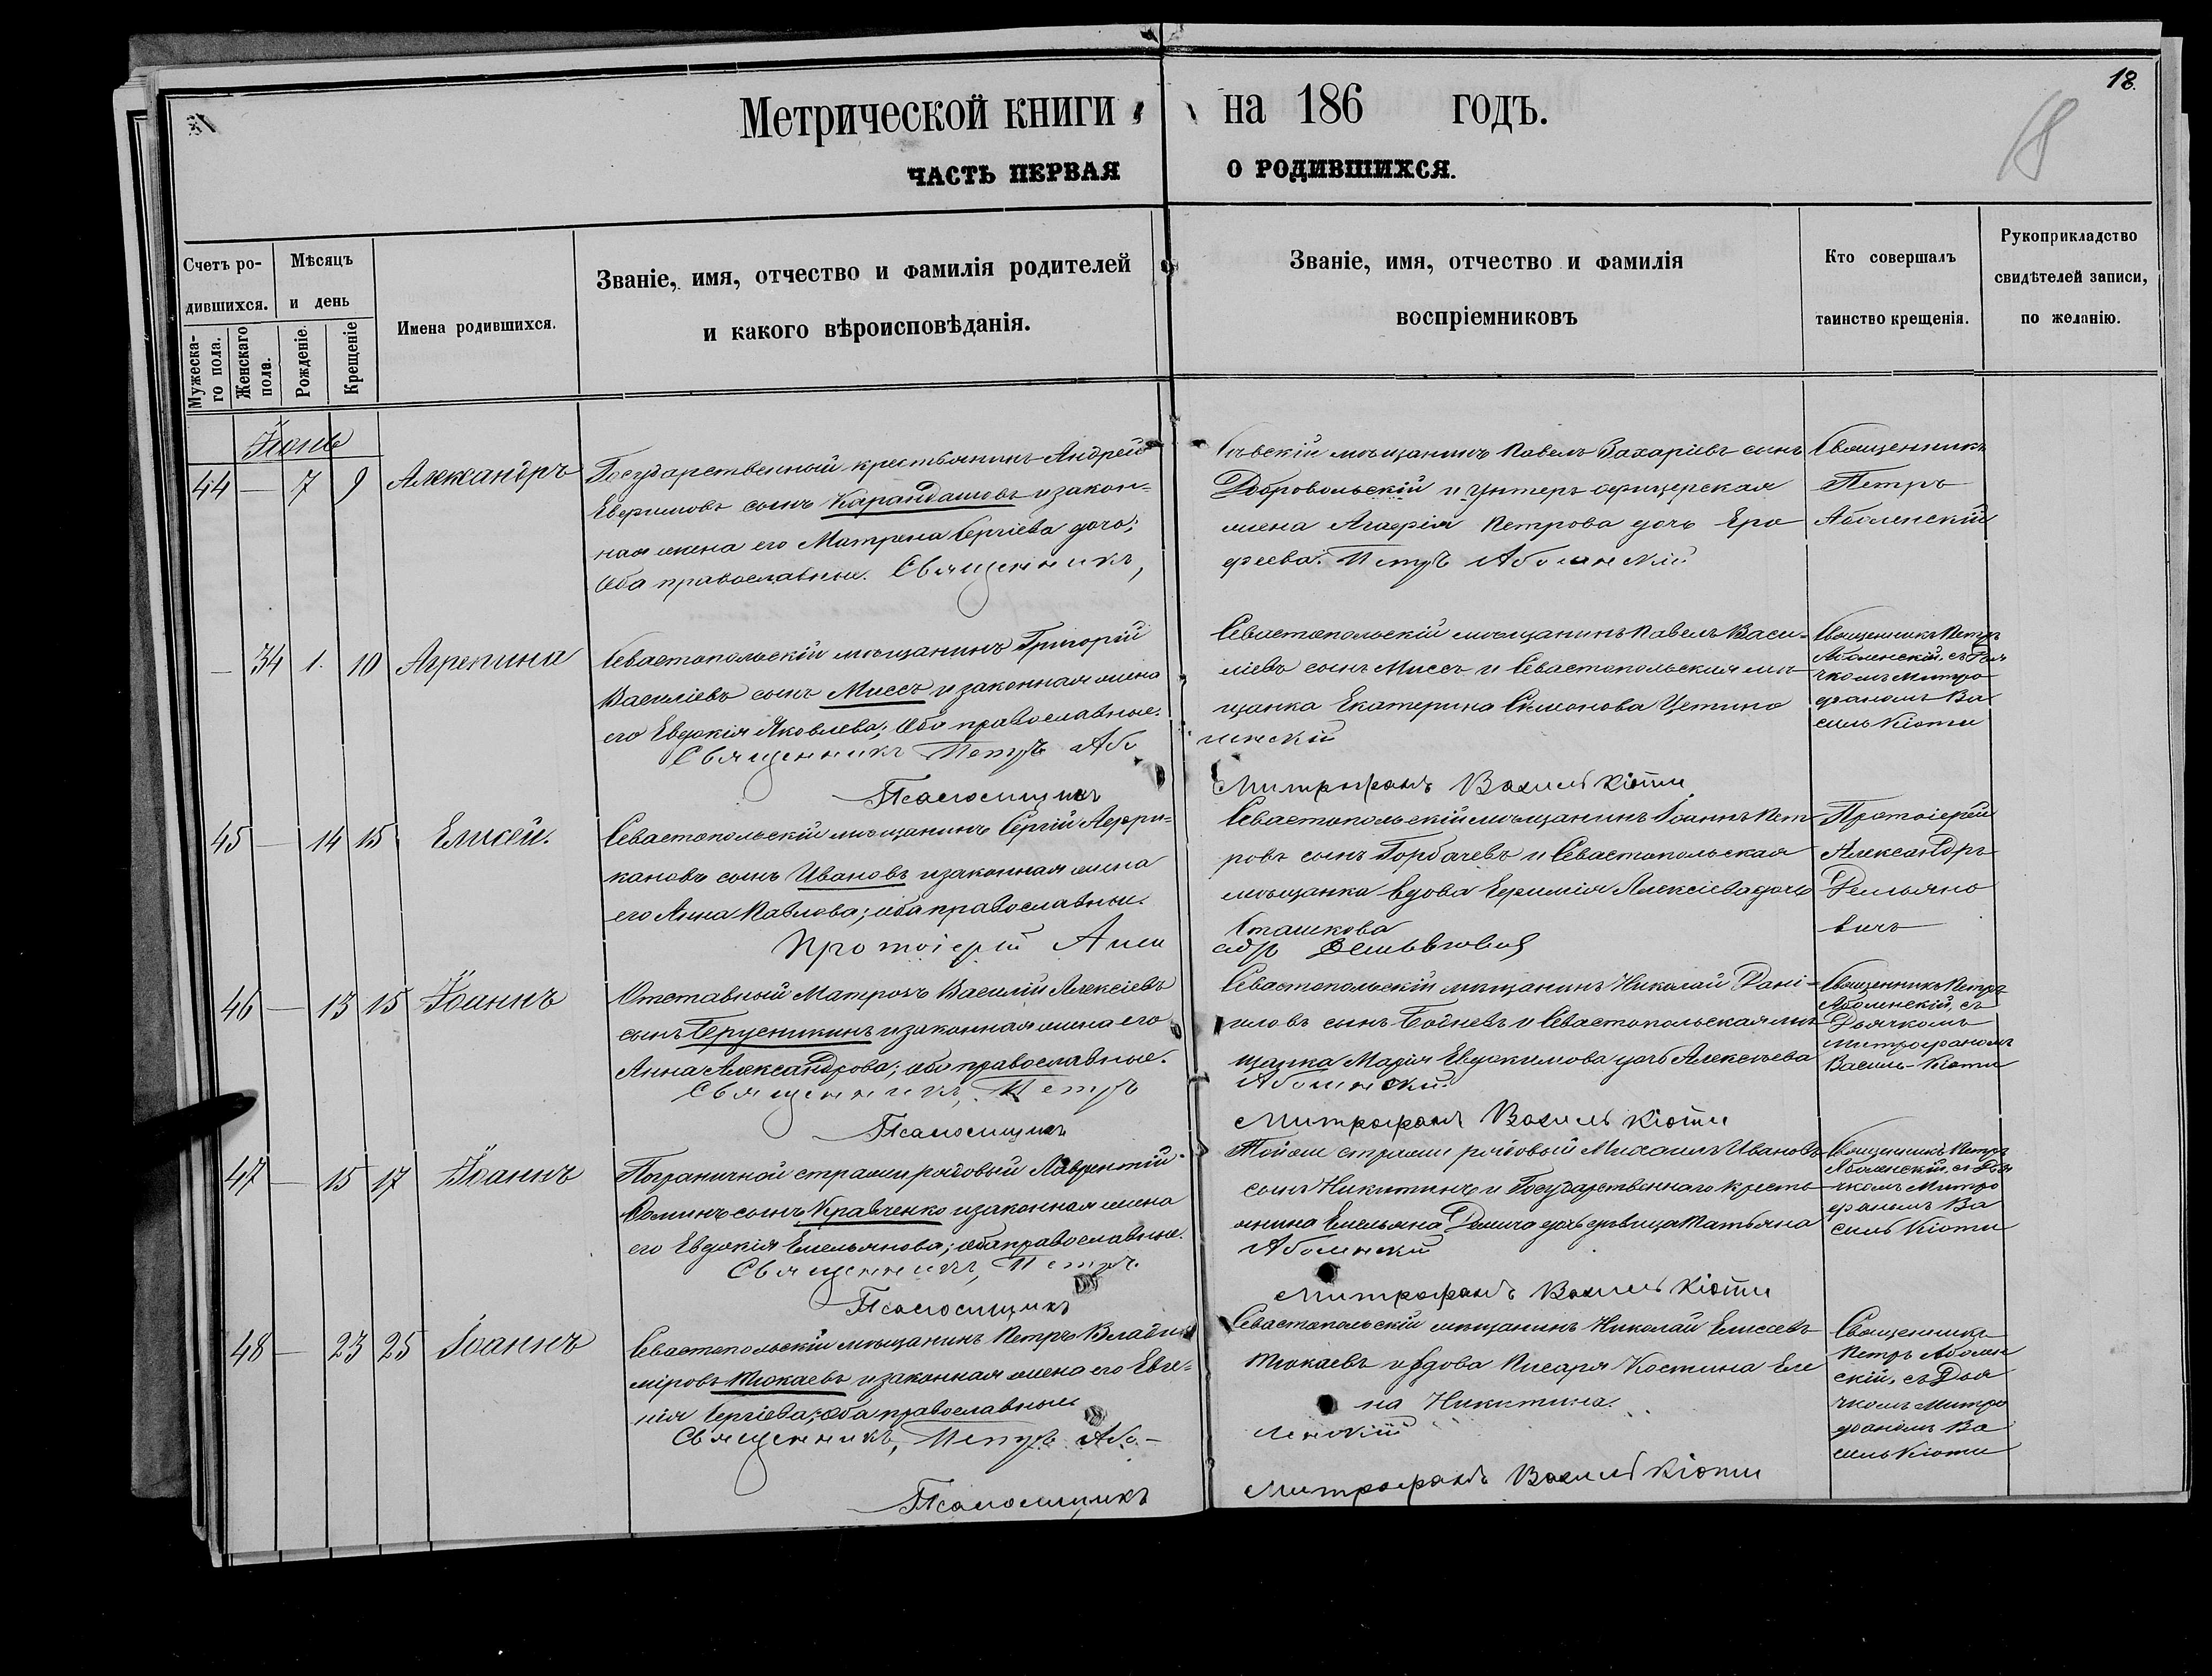 18.
18
Метрической книги на 186 годъ.
ЧАСТЬ ПЕРВАЯ О РОДИВШИХСЯ.
Счетъ ро-
дившихся.
Мужеска-
го пола.
Женскаго
пола.
Мѣсяцъ
и день
Рожденіе.
Крещеніе
Имена родившихся.
Званіе, имя, отчество и фамилія родителей
и какого вѣроисповѣданія.
Званіе, имя, отчество и фамилія
воспріемниковъ
Кто совершалъ
таинство крещенія.
Рукоприкладство
свидѣтелей записи,
по желанію.
Іюнь
44 — 7 9 Александръ
Государственный крестьянинъ Андрей
Ефримовъ сынъ Карандашовъ и закон=
ная жена его Матрена Сергіева дочь;
Оба православные. Священникъ,
мѣщанинъ Павелъ Захаріевъ сынъ
Добровольскій и Унтеръ офицерская
жена Агафія Петрова дочь Еро
феева. Петръ Аболенскій
Священникъ
Петръ
Аболенскій
— 34 1. 10 Агрепина
Севастопольскій мѣщанинъ Григорій
Василіевъ сынъ Миссъ и законная жена
его Евдокія Яковлева; Оба православные.
Священникъ Петръ Або
Псаломщикъ
Севастопольскій мѣщанинъ Павелъ Васи-
ліевъ сынъ Миссъ и Севастопольская мѣ-
щанка Екатерина Симонова
ленскій
Митрофанъ Василькіоти
Священникъ Петръ
Аболенскій, съ Дья
чкомъ Митро
фаномъ Ва
силькіоти
45 — 14 15 Елисей.
Севастопольскій мѣщанинъ Сергій Аффри-
кановъ сынъ Ивановъ и законная жена
его Анна Павлова; оба православные.
Протоіерей Алек
Севастопольскій мѣщанинъ Іоаннъ Пет
ровъ сынъ Горбачевъ и Севастопольская
мѣщанка вдова Ефимія Алексіева дочь
Сташкова
сдръ Демьяновичъ
Протоіерей
Александръ
Демьяно
вичъ
46 — 13 15 Іоаннъ
Отставный Матрозъ Василій Алексіевъ
сынъ Берусникинъ и законная жена его
Анна Александрова; оба православные.
Священникъ, Петръ
Псаломщикъ
Севастопольскій мѣщанинъ Николай Дані-
иловъ сынъ Бойневъ и Севастопольская мѣ
щанка Марія Евдокимова дочь Алексѣева
Аболенскій.
Митрофанъ Василькіоти
Священникъ Петръ
Аболенскій, съ
Дьячкомъ
Митрофаномъ
Василь-Кіоти
47 — 15 17 Іоаннъ
Пограничной стражи рядовый Лаврентій
Фоминъ сынъ Кравченко и законная жена
его Евдокія Емельянова; оба православные.
Священникъ, Петръ
Псаломщикъ
Тойже стражи рядовый Михаилъ Ивановъ
сынъ Никитинъ и Государственнаго кресть
янина Емельяна дочь дѣвица Татьяна
Аболенскій
Митрофанъ Василькіоти
Священникъ Петръ
Аболенскій, съ Дья
чкомъ Митро
фаномъ Ва
силькіоти
48 — 23 25 Іоаннъ
Севастопольскій мѣщанинъ Петръ Влади
міровъ Тюкаевъ и законная жена его Евге=
нія Сергіева; оба православные
Священникъ, Петръ Або-
Псаломщикъ
Севастопольскій мѣщанинъ Николай Елисеевъ
Тюкаевъ и вдова Писаря Костина Еле
на Никитина.
ленскій
Митрофанъ Василькіоти
Священникъ
Петръ Аболен
скій, съ Дья
чкомъ Митро
фаномъ Ва
силькіоти